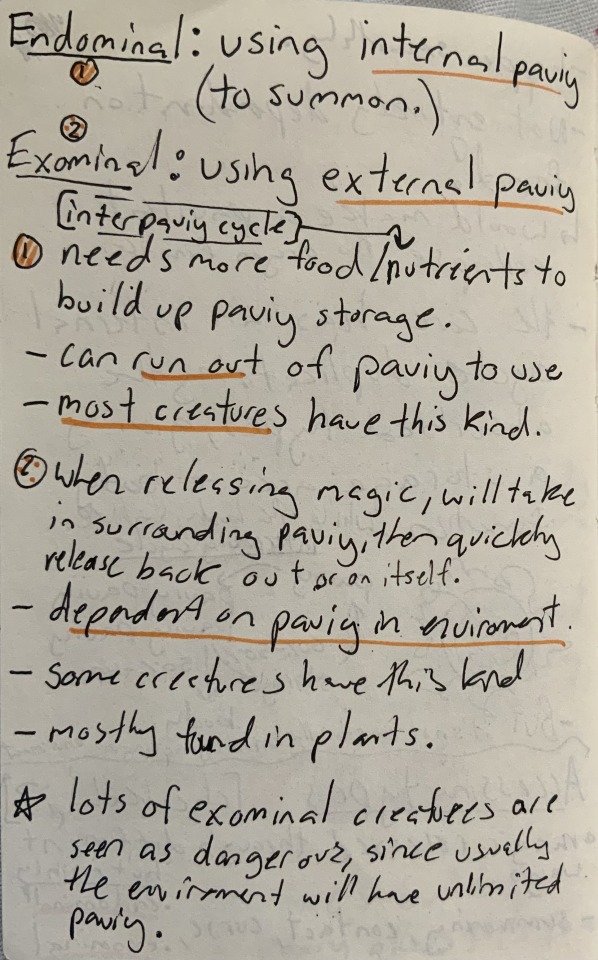 Endominal: using internal paviy
①
(to summon.)
②
Exominal: using external paviy
[interpaviy cycle]
① needs more food/nutrients to
build up paviy storage.
- can run out of paviy to use
- most creatures have this kind.
② when releasing magic, will take
in surrounding paviy, then quickly
release back out or on itself.
- dependent on paviy in enviroment.
- some creatures have this kind
- mostly found in plants.
☆ lots of exominal creatures are
seen as dangerous, since usually
the enviroment will have unlimited
paviy.